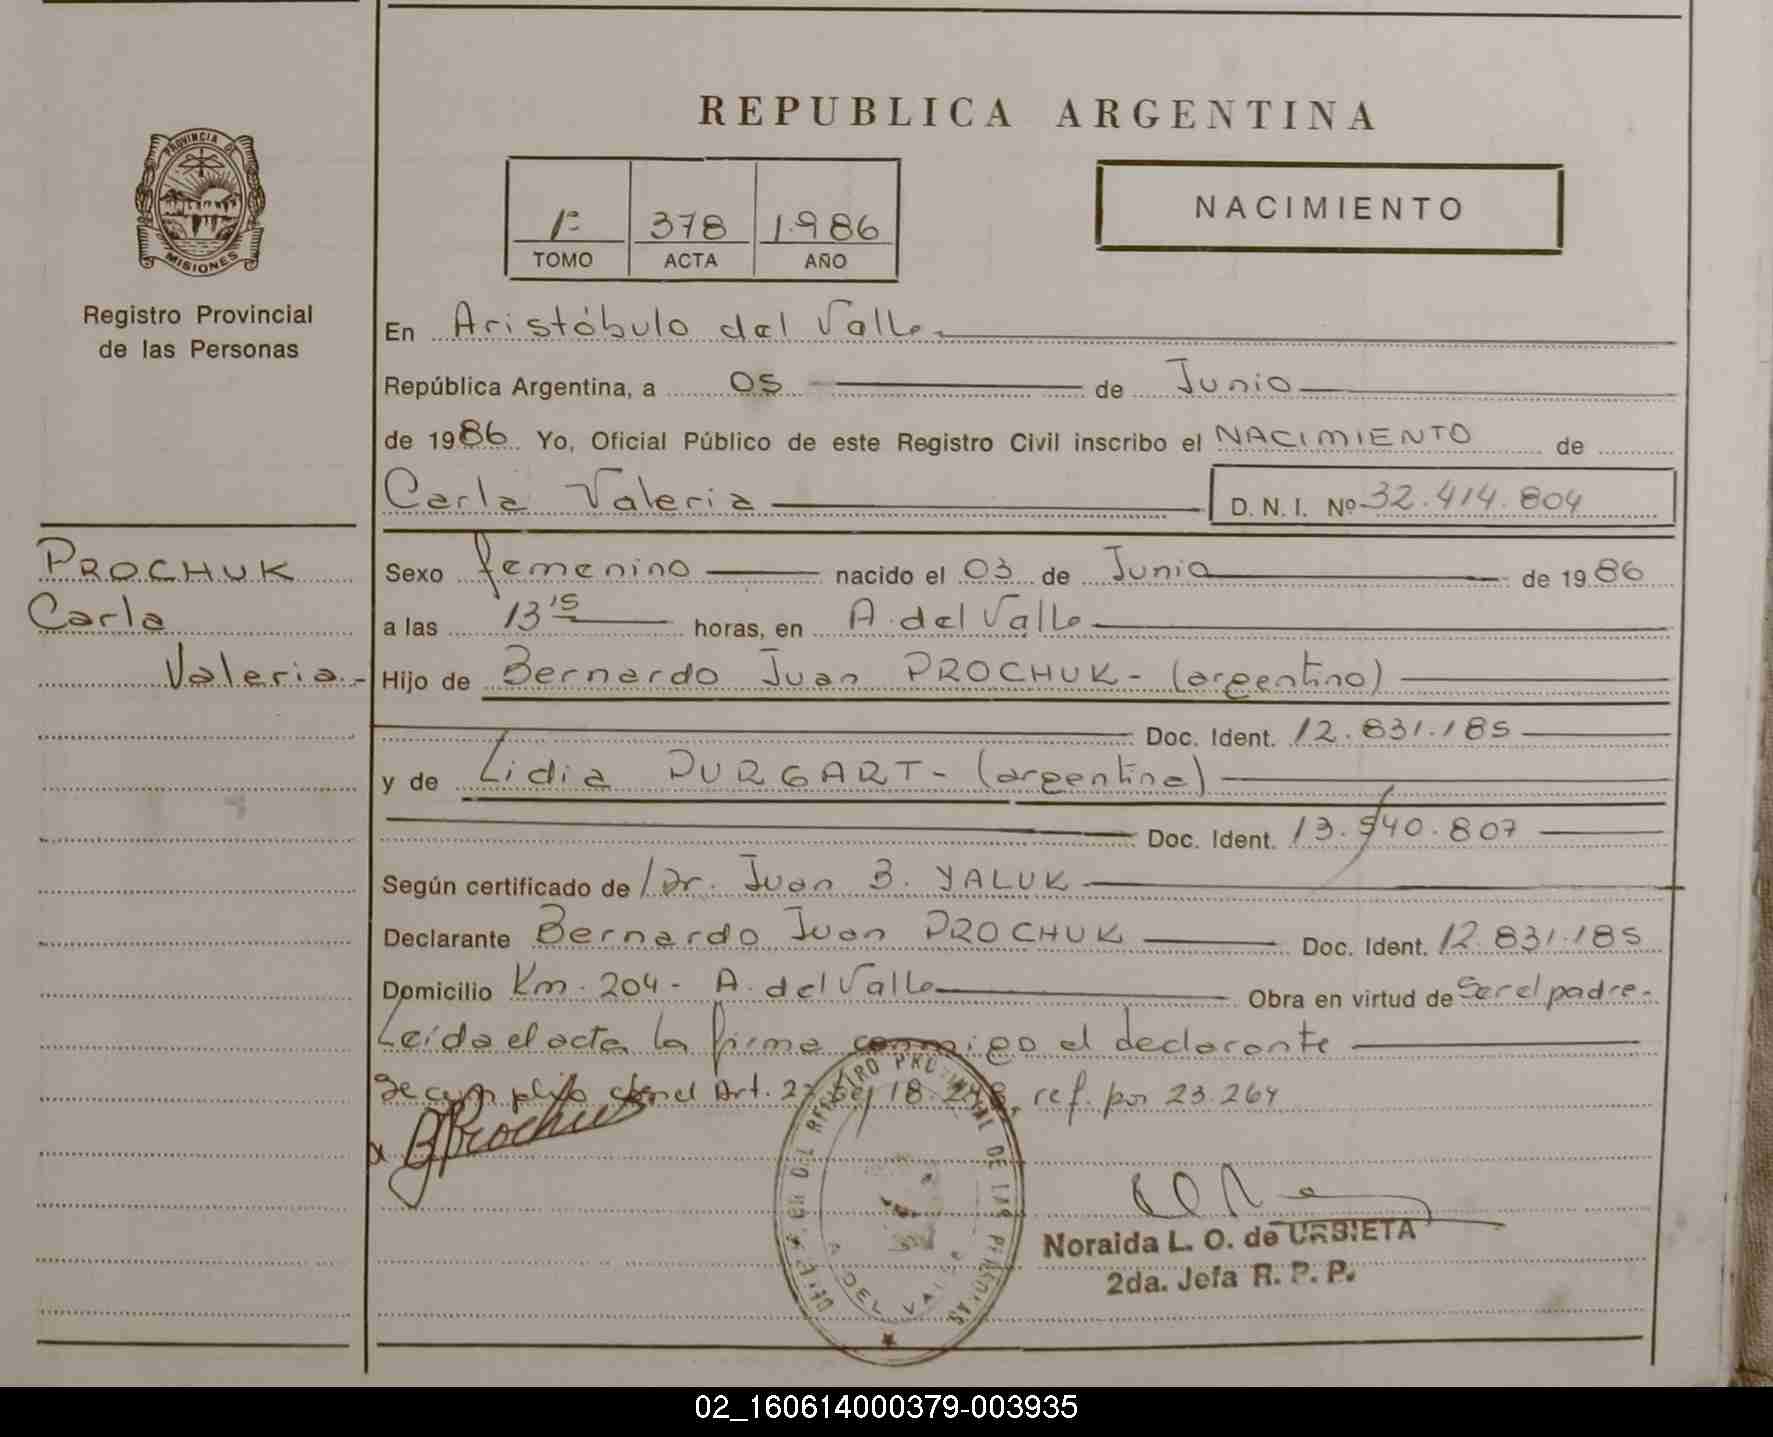 REPUBLICA ARGENTINA
PROVINCIA DE
MISIONES
Registro Provincial
de las Personas
1º 378 1.986
TOMO ACTA AÑO
NACIMIENTO
En Aristóbulo del Valle
República Argentina, a 05 de Junio
de 1986 Yo, Oficial Público de este Registro Civil inscribo el NACIMIENTO de
Carla Valeria D. N. I. Nº 32.414.804
PROCHUK
Carla
Valeria.-
Sexo femenino nacido el 03 de Junio de 1986
a las 13 15 horas, en A. del Valle
Hijo de Bernardo Juan PROCHUK - (argentino)
Doc. Ident. 12.831.185
y de Lidia DURGART - (argentina)
Doc. Ident. 13.540.807
Según certificado de Dr. Juan B. YALUK
Declarante Bernardo Juan PROCHUK Doc. Ident. 12.831.185
Domicilio Km. 204 - A. del Valle Obra en virtud de Ser el padre.-
Leída el acta la firma conmigo el declarante
Se cumplió con el Art. 27 Ley 18.248, ref. por 23.264
BProchuk
REGISTRO PROVINCIAL DE LAS PERSONAS
A. DEL VALLE
Noraida L. O. de URBIETA
2da. Jefa R. P. P.
02_160614000379-003935